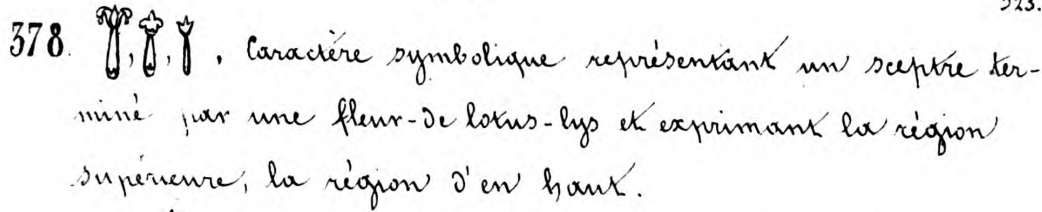 323.
378. , , . Caractère symbolique représentant un sceptre ter-
miné par une fleur-de lotus-lys et exprimant la région
supérieure, la région d'en haut.